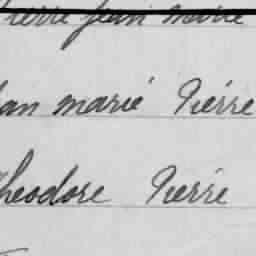 Pierre Jean Marie
Jean marié Piérre
Theodore Piérre